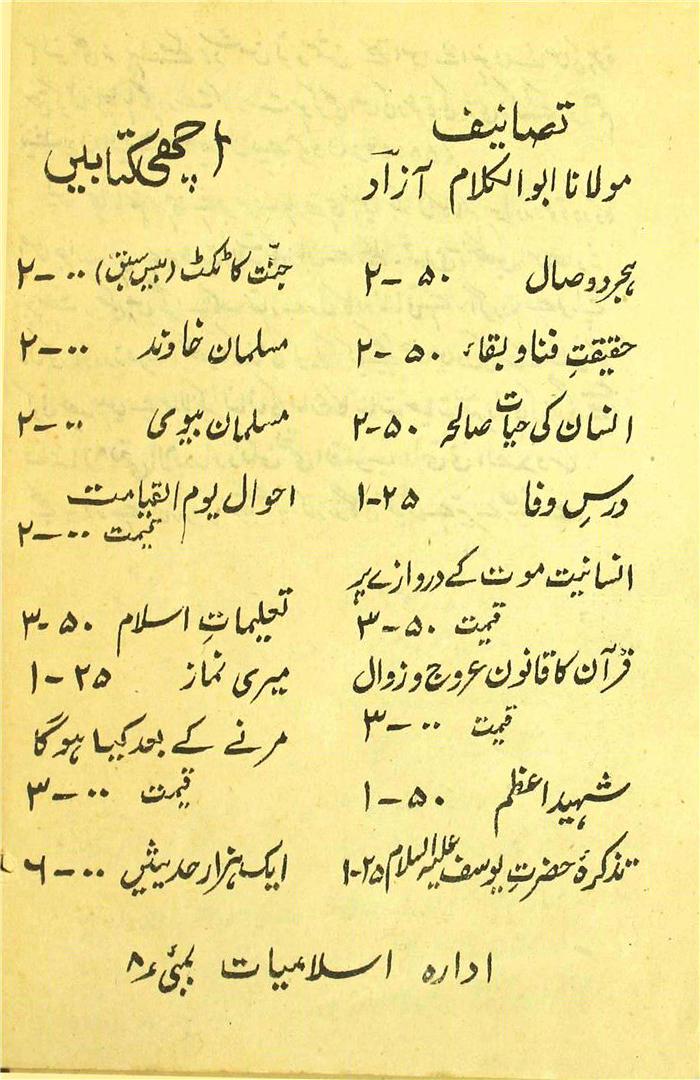 تصانیف
مولانا ابوالکلام آزاد
ہجر و وصال ۵۰-۲
حقیقتِ فنا و بقاء ۵۰-۲
انسان کی حیات صالحہ ۵۰-۲
درسِ وفا ۲۵-۱
انسانیت موت کے دروازے پر
قیمت ۵۰-۳
قرآن کا قانون عروج و زوال
قیمت ۰۰-۳
شہید اعظم ۵۰-۱
تذکرۂ حضرتِ یوسف علیہ السلام ۲۵-۱
اچھی کتابیں
جنّت کا ٹکٹ (بیس سبق) ۰۰-۲
مسلمان خاوند ۰۰-۲
مسلمان بیوی ۰۰-۲
احوال یوم القیامت
قیمت ۰۰-۲
تعلیماتِ اسلام ۵۰-۳
میری نماز ۲۵-۱
مرنے کے بعد کیا ہوگا
قیمت ۰۰-۳
ایک ہزار حدیثیں ۰۰-۶
ادارہ اسلامیات بمبئی ۸